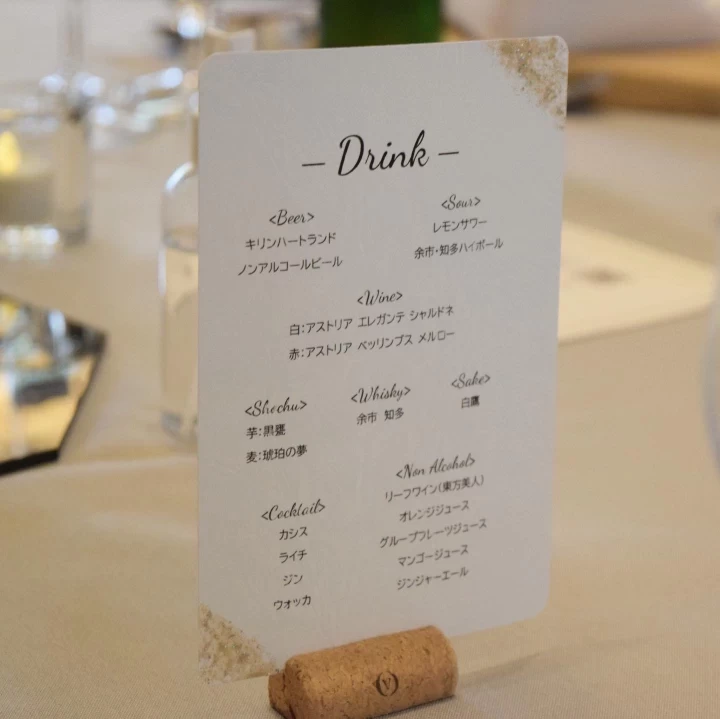 — Drink —
<Beer>
キリンハートランド
ノンアルコールビール
<Sour>
レモンサワー
余市・知多ハイボール
<Wine>
白:アストリア エレガンテ シャルドネ
赤:アストリア ベッリンプス メルロー
<Shochu>
芋:黒甕
麦:琥珀の夢
<Whisky>
余市 知多
<Sake>
白鷹
<Cocktail>
カシス
ライチ
ジン
ウォッカ
<Non Alcohol>
リーフワイン(東方美人)
オレンジジュース
グループフルーツジュース
マンゴージュース
ジンジャーエール